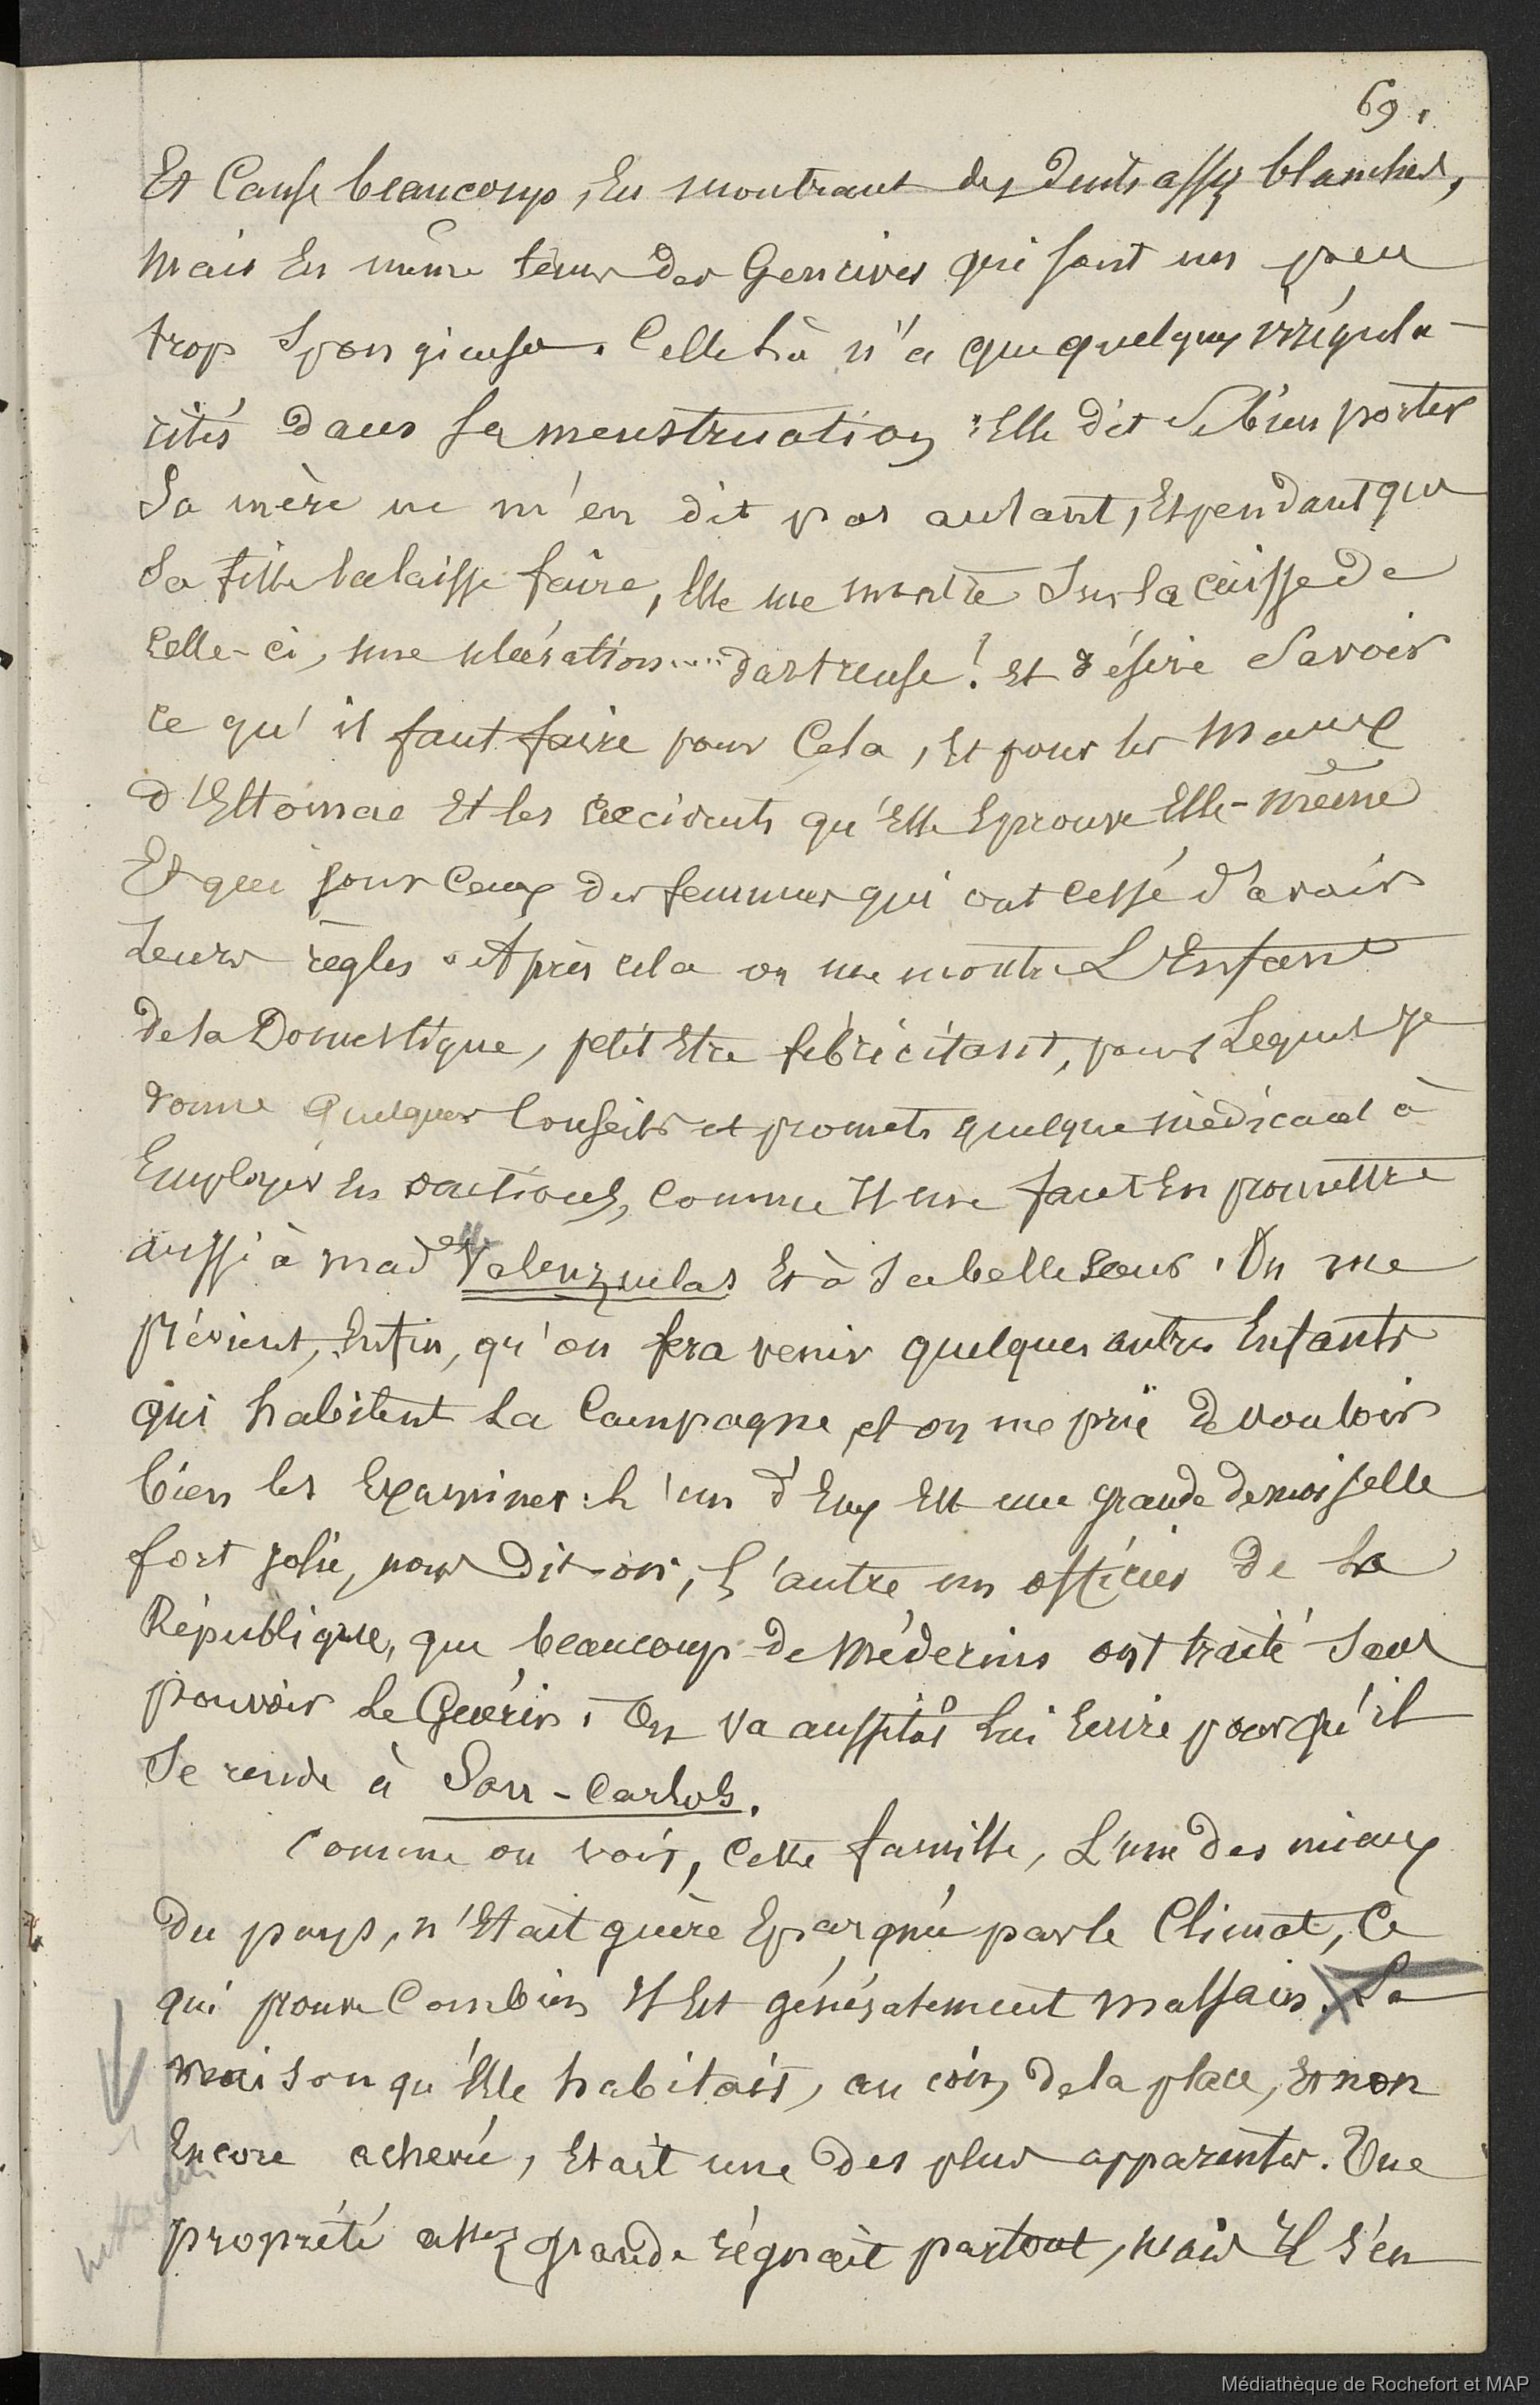 69.
Et Cause beaucoup, En montrant des Dents assez blanches,
mais En même tems des Gencives qui sont un peu
trop Spongieuses. Celle là n'a que quelques irrégula-
rités dans sa menstruation : Elle dit se bien porter
Sa mère ne m'en dit pas autant, Et pendant que
Sa fille la laisse faire, Elle me montre Sur la cuisse de
celle-ci, une ulcération.... dartreuse! Et désire savoir
ce qu'il faut faire pour Cela, Et pour les Maux
d'Estomac Et les accidents qu'Elle Eprouve Elle-même
Et qui sont Ceux des femmes qui ont cessé d'avoir
Leurs règles. Après cela on me montre L'Enfant
de la Domestique, petit Etre fébricitant, pour Lequel je
donne Quelques Conseils et promets quelque médicamt à
Employer En frictions, Comme Il me faut En promettre
aussi à Madelle Valenzuelas Et à Sa belle Sœur. On me
prévient, Enfin, qu'on fera venir quelques autres Enfants
qui habitent La Campagne et on me prie de vouloir
bien les Examiner : L'un d'Eux Est une grande demoiselle
fort jolie, nous Dit-on, L'autre un officier de La
République, que beaucoup de Médecins ont traité Sans
pouvoir Le Guérir. On va aussitôt Lui Ecrire pour qu'il
Se rende à San-Carlos.
Comme on voit, Cette famille, L'une des mieux
Du pays, n'Etait guère Epargnée par le Climat, Ce
qui prouve Combien Il Est généralement malsain. La
maison qu'Elle habitait, au coin de la place, Et non
Encore achevée, Etait une des plus apparentes. Une
propreté assez grande régnait partout, mais Il s'en
Médiathèque de Rochefort et MAP